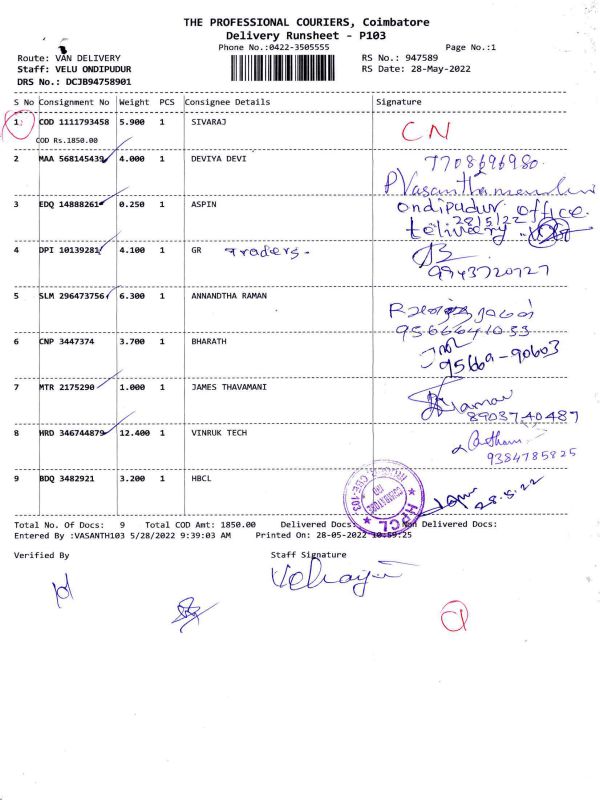 THE PROFESSIONAL COURIERS, Coimbatore
Delivery Runsheet - P103
Phone No.:0422-3505555
Page No.:1
Route: VAN DELIVERY
RS No.: 947589
Staff: VELU ONDIPUDUR
RS Date: 28-May-2022
DRS No.: DCJB94758901
S No Consignment No Weight PCS Consignee Details Signature
1 COD 1111793458 5.900 1 SIVARAJ CN
COD Rs.1850.00
2 MAA 568145439 4.000 1 DEVIYA DEVI 7708696980
3 EDQ 14888261 0.250 1 ASPIN ondipudur office
28/5/22
4 DPI 10139281 4.100 1 GR Traders. 9943720727
5 SLM 296473756 6.300 1 ANNANDTHA RAMAN
9566641033
6 CNP 3447374 3.700 1 BHARATH
95669-90603
7 MTR 2175290 1.000 1 JAMES THAVAMANI
8903740487
8 HRD 346744879 12.400 1 VINRUK TECH
9384785825
9 BDQ 3482921 3.200 1 HBCL 28.5.22
HPCL
Total No. Of Docs: 9 Total COD Amt: 1850.00 Delivered Docs: Non Delivered Docs:
Entered By :VASANTH103 5/28/2022 9:39:03 AM Printed On: 28-05-2022 10:59:25
Verified By Staff Signature